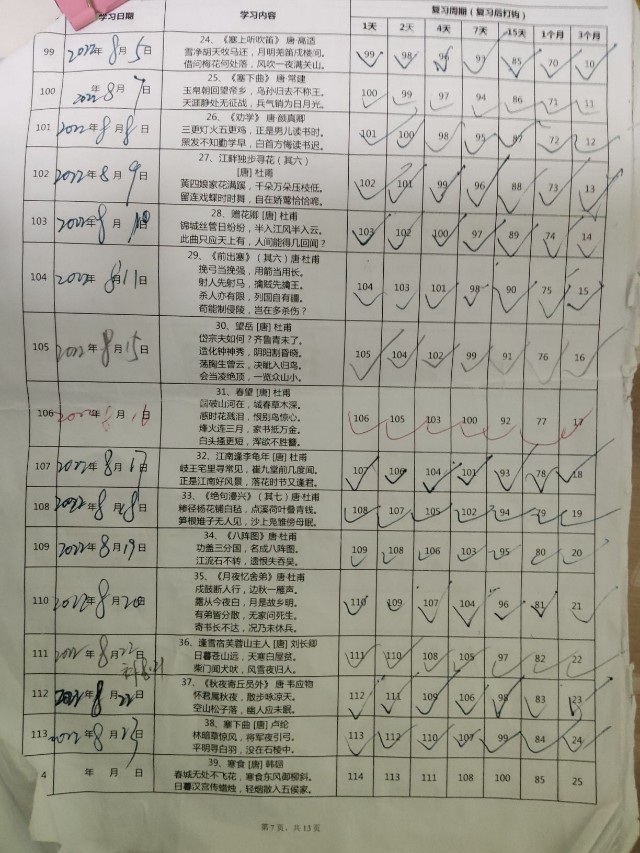 学习日期 学习内容 复习周期（复习后打钩）
1天 2天 4天 7天 15天 1个月 3个月
99 2022年8月5日 24、《塞上听吹笛》唐·高适 99 98 96 93 85 70 10
雪净胡天牧马还，月明羌笛戍楼间。
借问梅花何处落，风吹一夜满关山。
100 2022年8月7日 25、《塞下曲》唐·常建 100 99 97 94 86 71 11
玉帛朝回望帝乡，乌孙归去不称王。
天涯静处无征战，兵气销为日月光。
101 2022年8月8日 26、《劝学》唐·颜真卿 101 100 98 95 87 72 12
三更灯火五更鸡，正是男儿读书时。
黑发不知勤学早，白首方悔读书迟。
102 2022年8月9日 27、江畔独步寻花（其六） 102 101 99 96 88 73 13
[唐] 杜甫
黄四娘家花满蹊，千朵万朵压枝低。
留连戏蝶时时舞，自在娇莺恰恰啼。
103 2022年8月10日 28、赠花卿 [唐] 杜甫 103 102 100 97 89 74 14
锦城丝管日纷纷，半入江风半入云。
此曲只应天上有，人间能得几回闻？
104 2022年8月11日 29、《前出塞》（其六）唐·杜甫 104 103 101 98 90 75 15
挽弓当挽强，用箭当用长。
射人先射马，擒贼先擒王。
杀人亦有限，列国自有疆。
苟能制侵陵，岂在多杀伤？
105 2022年8月15日 30、望岳 [唐] 杜甫 105 104 102 99 91 76 16
岱宗夫如何？齐鲁青未了。
造化钟神秀，阴阳割昏晓。
荡胸生曾云，决眦入归鸟。
会当凌绝顶，一览众山小。
106 2022年8月16日 31、春望 [唐] 杜甫 106 105 103 100 92 77 17
国破山河在，城春草木深。
感时花溅泪，恨别鸟惊心。
烽火连三月，家书抵万金。
白头搔更短，浑欲不胜簪。
107 2022年8月17日 32、江南逢李龟年 [唐] 杜甫 107 106 104 101 93 78 18
岐王宅里寻常见，崔九堂前几度闻。
正是江南好风景，落花时节又逢君。
108 2022年8月18日 33、《绝句漫兴》（其七）唐·杜甫 108 107 105 102 94 79 19
糁径杨花铺白毡，点溪荷叶叠青钱。
笋根雉子无人见，沙上凫雏傍母眠。
109 2022年8月19日 34、《八阵图》唐·杜甫 109 108 106 103 95 80 20
功盖三分国，名成八阵图。
江流石不转，遗恨失吞吴。
110 2022年8月20日 35、《月夜忆舍弟》唐·杜甫 110 109 107 104 96 81 21
戍鼓断人行，边秋一雁声。
露从今夜白，月是故乡明。
有弟皆分散，无家问死生。
寄书长不达，况乃未休兵。
111 2022年8月22日 36、逢雪宿芙蓉山主人 [唐] 刘长卿 111 110 108 105 97 82 22
日暮苍山远，天寒白屋贫。
柴门闻犬吠，风雪夜归人。
112 2022年8月22日 37、《秋夜寄丘员外》唐·韦应物 112 111 109 106 98 83 23
怀君属秋夜，散步咏凉天。
空山松子落，幽人应未眠。
113 2022年8月23日 38、塞下曲 [唐] 卢纶 113 112 110 107 99 84 24
林暗草惊风，将军夜引弓。
平明寻白羽，没在石棱中。
4 年 月 日 39、寒食 [唐] 韩翃 114 113 111 108 100 85 25
春城无处不飞花，寒食东风御柳斜。
日暮汉宫传蜡烛，轻烟散入五侯家。
第 7 页，共 13 页